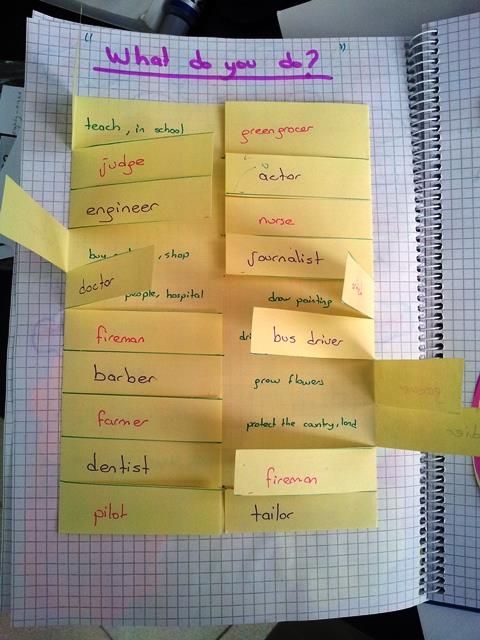 " What do you do? "
teach, in school
judge
engineer
buy , shop
doctor
people, hospital
fireman
barber
farmer
dentist
pilot
greengrocer
actor
nurse
journalist
draw painting
bus driver
grow flowers
protect the cantry, land
fireman
tailor